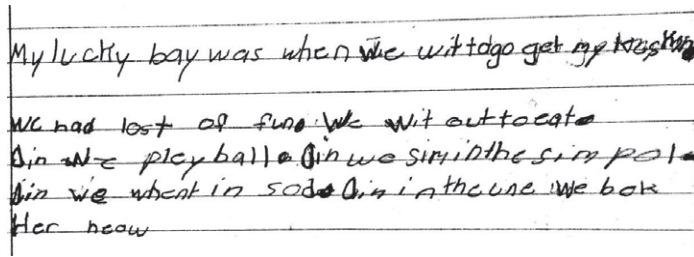 My lucky bay was when we wit to go get my
We had lost of fun. We wit out to eat.
Din we pley ball. Din we sim in the sim pol.
Din we whent in sod. Din in the une we bok
Her heow